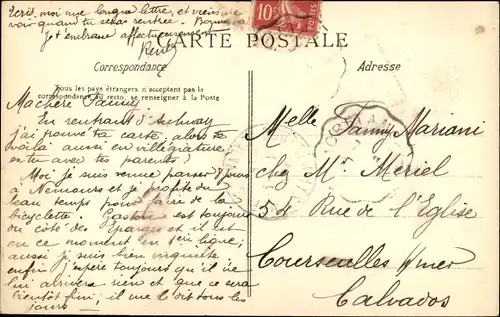 Ecris, moi une longue lettre, et viens me
voir quand tu seras rentrée.
Je t'embrasse affectueusement
René
10c
POSTES
CARTE POSTALE
Correspondance
Adresse
Tous les pays étrangers n'acceptent pas la
correspondance au recto, se renseigner à la Poste
Ma chère Fanny
En rentrant d'
j'ai trouvé ta carte, alors te
voilà aussi en villégiature
es-tu avec tes parents?
Moi je suis venue passer 8 jours
à Nemours et je profite du
beau temps pour faire de la
bicyclette. Gaston est toujours
du côté des Eparges et il est
en ce moment en 1ère ligne;
aussi je suis bien inquiète
enfin j'espère toujours qu'il ne
lui arrivera rien et que ce sera
bientôt fini; il me le dit tous les
jours
Melle Fanny Mariani
chez Mr. Meriel
5d Rue de l'Eglise
Courseulles s/mer
Calvados